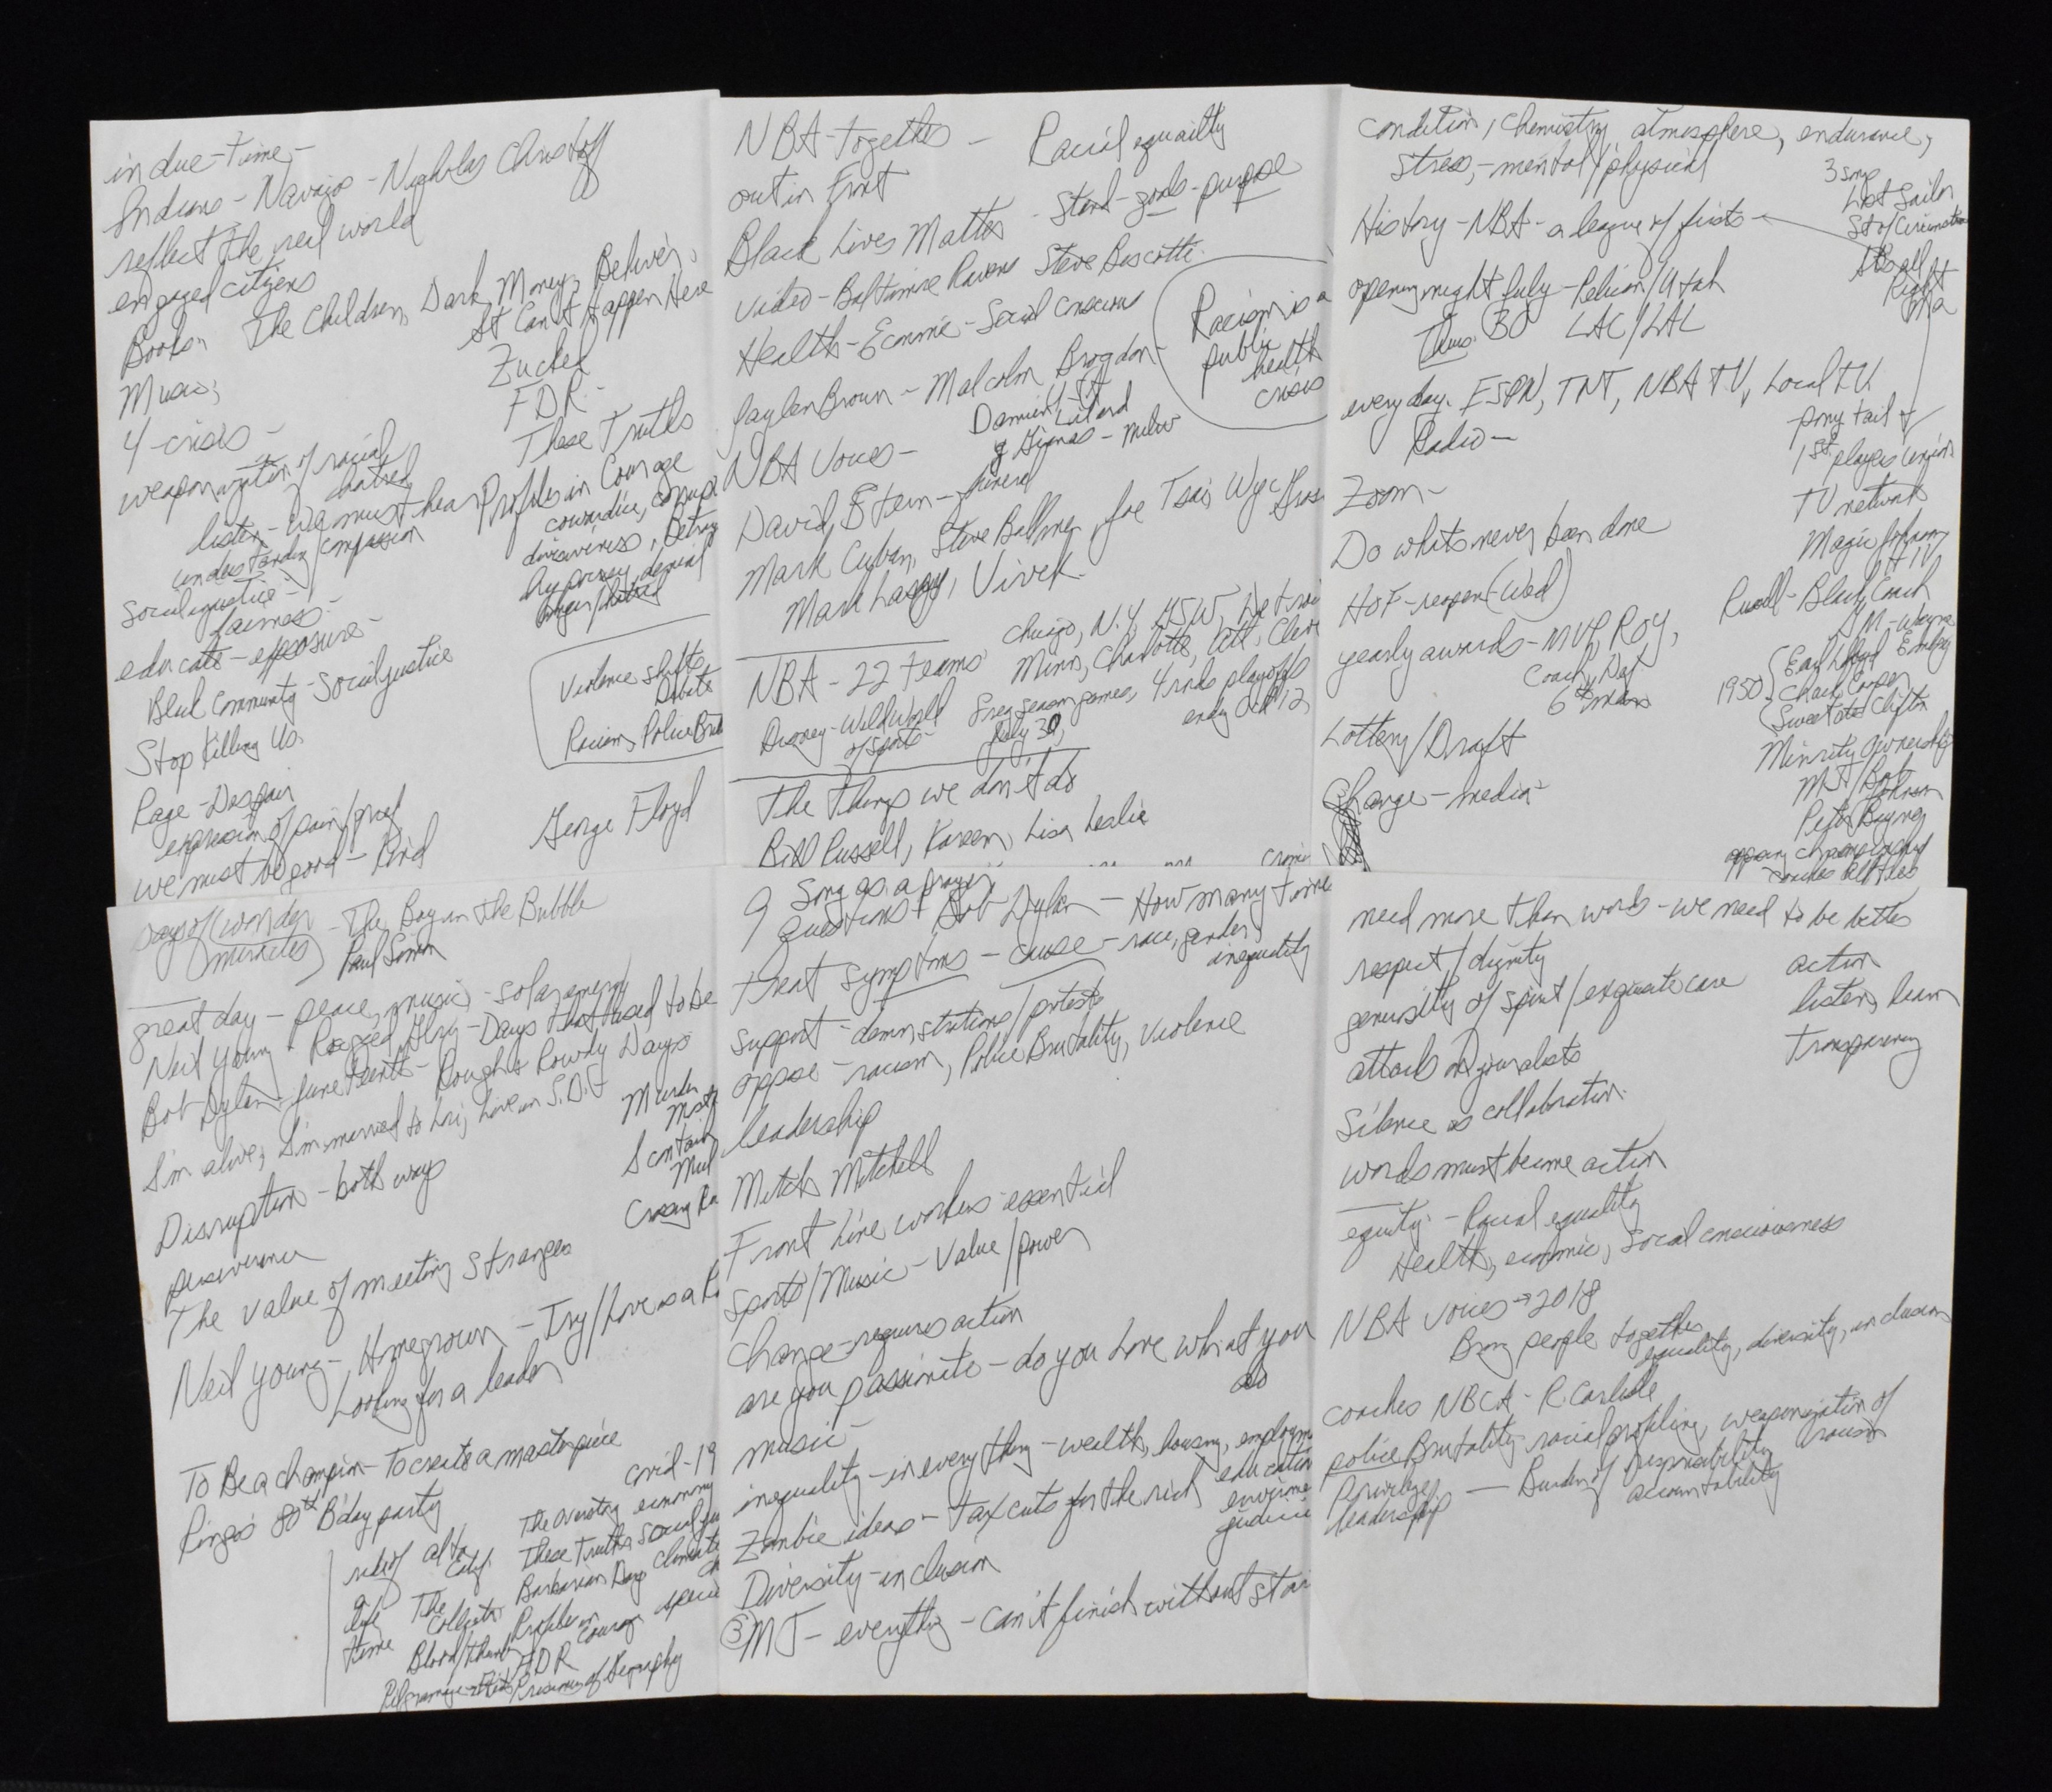 in due-time-
Indians - Navajos - Nicholas Christoff
reflect the real world
engaged citizens
Books, The Children, Dark Money, Believer,
It Can't Happen Here
Music;
Zucked
4-crisis -
FDR -
These Truths
weaponization of racial
hatred
Profiles in Courage
listen - we must hear
cowardice,
understanding/compassion
divisiveness,
Social justice -
hypocrisy, denial
fairness -
educate - exposure -
Black Community - Social justice
Violence shifts
Debate
Stop Killing Us.
Racism, Police
Rage - Despair
expression of pain/grief
George Floyd
we must be good - Kind
NBA-Together - Racial equailty
out in Front
Black Lives Matter - Stand - goals - purpose
Video - Baltimore Ravens Steve Biscotti.
Health - Economic - Social Conscious
Racism is a
public
health
crisis
Jaylen Brown - Malcolm Brogdon -
NBA Voices -
Damian
Lilard
Giannas - Milw
David Stern - funeral
Mark Cuban, Steve Ballmer, Joe Tsai, Wyc
Mark Lasry, Vivek.
Chicago, N.Y. GSW, Detroi
NBA - 22 teams Minn, Charlotte, Atl, Cleve
Disney - Wild World 8 reg season games, 4 rnds playoffs
of sports - July 30, end Oct 12
The things we don't do
Bill Russell, Kareem, Lisa Leslie
condition, chemistry, atmosphere, endurance,
stress, - mental/physical
3 songs
Lost Sailor
St of Circumstance
Its all
Right
Ma
History - NBA - a league of firsts -
opening night July - Pelican/Utah
Thurs. 30 LAC/LAL
every day. ESPN, TNT, NBA TV, Local TV.
Radio -
pony tail
1st players union
TV network
Zoom -
Magic Johnson
HIV
Do whats never been done
HOF - reopen (Wed)
Russell - Black Coach
GM - Wayne
Embry
yearly awards - MVP, ROY,
Coach, Def
6th man
1950 { Earl Lloyd
Chuck Cooper
Sweetwater Clifton
Lottery/Draft
Minority Ownership
MJ/Bob
Johnson
Change - media -
Peter Bynoe
championship
coaches
says of (wonder - The Boy in the Bubble
(miracles) Paul Simon
great day - peace, music, - solar energy
Neil Young - Ragged Glory - Days that used to be
Bob Dylan - Juneteenth - Rough & Rowdy Days
I'm alive, I'm married to Lori, Live in S.D.
Murder
Most
I contain
Mul
Disruption - both ways
Crossing
perseverance
The value of meeting strangers
Neil Young - Homegrown - Try/Love is a
Looking for a leader
To Be a Champion - To create a masterpiece
Ringo's 80th B'day party
covid-19
economy
The Overstory
ride of
a
life
time
alta
Calif
These Truths
Social
Barbarian Days
Climate
The
Collector
Profiles in
Courage
Blood/thunder
FDR
Pilgrimage
Prisoners of Geography
Song as a prayer
9 questions - Bob Dylan - How many times
treat symptoms - cause - race, gender,
inequality
support - demonstrations/protests
oppose - racism, Police Brutality, Violence
leadership
Mitch Mitchell
Front Line workers essential
Sports/Music - Value/power
Change - requires action
are you passionate - do you love what you
do
music -
inequality - in everything - wealth, housing, employm
education
Zombie ideas - Tax cuts for the rich
Diversity - inclusion
(3) MJ - everything - can't finish without star
need more than words - we need to be better
respect/dignity
generosity of spirit/exquisite care
action
listen, learn
Transparency
attacks on journalists
Silence as collaboration.
words must become action
equity - Racial equality
Health, economic, Social consciousness
NBA voices → 2018
Bring people together
equality, diversity, inclusion
coaches NBCA - R. Carlisle
police Brutality - racial profiling, weaponization of
racism
Privilege
leadership - Burden of responsibility
accountability